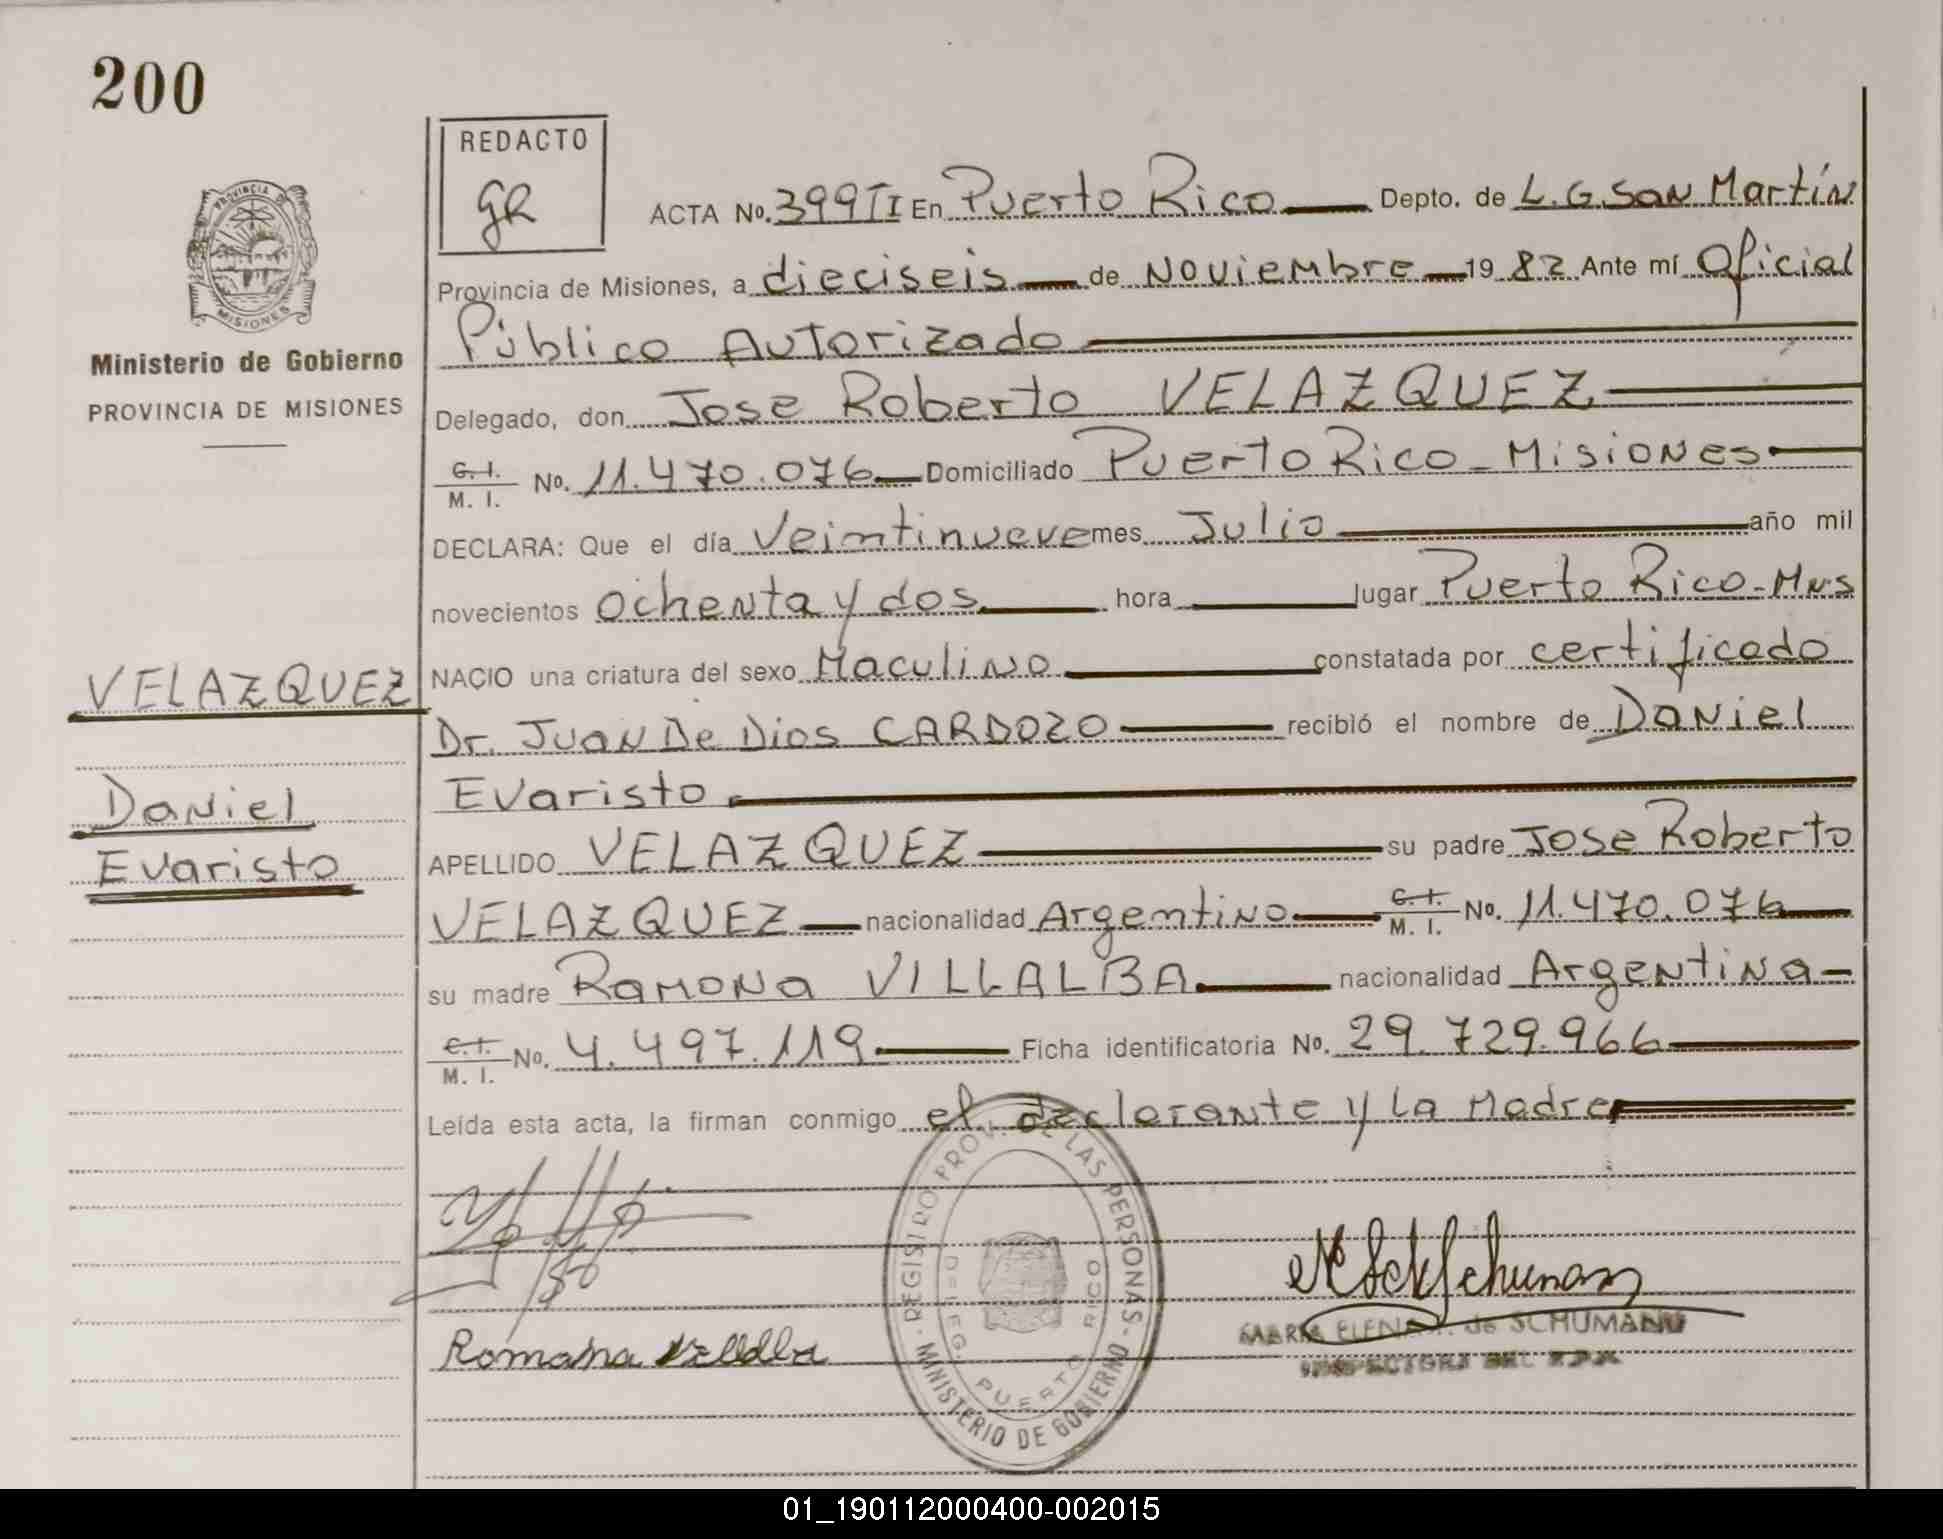 200
REDACTO
GR
PROVINCIA DE
MISIONES
Ministerio de Gobierno
PROVINCIA DE MISIONES
ACTA No. 399 II En Puerto Rico Depto. de L. G. San Martín
Provincia de Misiones, a dieciseis de Noviembre 19 82 Ante mí Oficial
Público Autorizado
Delegado, don Jose Roberto VELAZQUEZ
C. I.
M. I. No. 11.470.076 Domiciliado Puerto Rico - Misiones
DECLARA: Que el día Veintinueve mes Julio año mil
novecientos Ochenta y dos hora lugar Puerto Rico - Mns
VELAZQUEZ
NACIO una criatura del sexo Maculino constatada por certificado
Dr. Juan De Dios CARDOZO recibió el nombre de Daniel
Daniel
Evaristo
Evaristo
APELLIDO VELAZQUEZ su padre Jose Roberto
VELAZQUEZ nacionalidad Argentino C. I. M. I. No. 11.470.076
su madre Ramona VILLALBA nacionalidad Argentina
C. I.
M. I. No. 4.497.119 Ficha identificatoria No. 29.729.966
Leída esta acta, la firman conmigo el declarante y la Madre
REGISTRO PROV. DE LAS PERSONAS - MINISTERIO DE GOBIERNO
DELEG. PUERTO RICO
MARIA ELENA de SCHUMANN
INSPECTORA DEL R.P.P.
01_190112000400-002015